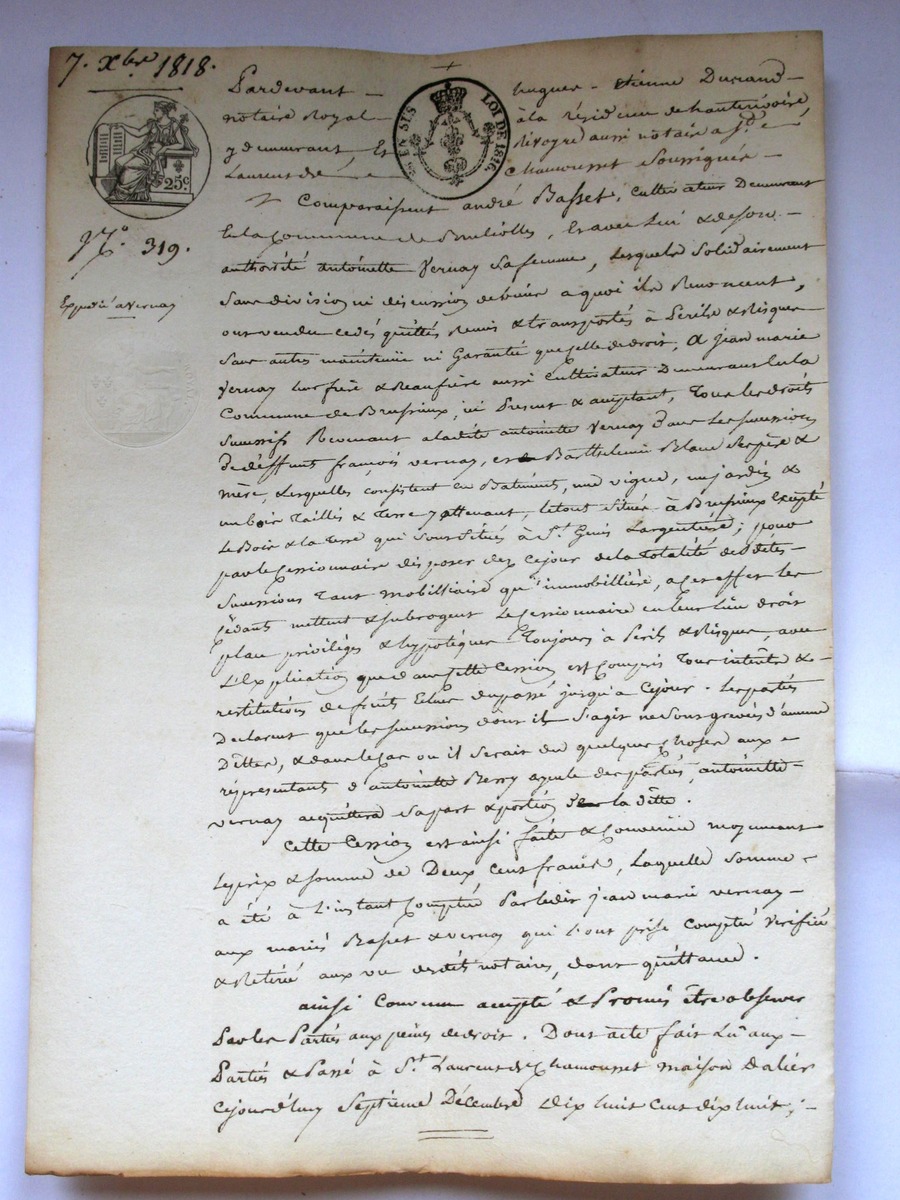 7. Xbre 1818.
Pardevant hugues - étienne Durand -
notaire Royal à la résidence de hauterivoire,
y demeurant Et révoyre aussi notaire a St. -
Laurent de chamousset Soussignés -
25c
EN SUS LOI DE 1816.
N.o 319.
Expedié a Vernay
Comparaissent andré Basset, cultivateur Demeurant
En la Commune de Brullioles, Et avec lui & de son -
authorité antoinette Vernay Sa femme, Lesquels Solidairement
Sans division ni discussion de biens a quoi ils Renoncent,
ont vendu cedés quittés Remis & transportés à Périls & Risques
Sans autres maintenüe ni Garantie que celle de droit, A jean marie
Vernay leur frere & Beaufrère aussi Cultivateur Demeurant En la
Commune de Brussieux, ici Present & acceptant, Tous les droits
Successifs Revenant a ladite antoinette Vernay Dans Les successions
De deffunts françois vernay, et Barthelemie Blanc Ses père &
mère, Lesquelles consistent En Batiments, une vigne, un jardin &
un bois Taillis & Terre y attenant, le tout Situés à Brussieux Excepté
Le Bois & la Terre qui Sont Situés à St. Genis L'argentiere; pour
par le Cessionnaire disposer dez cejour de la Totalité desdites -
Successions Tant mobilliaire qu'immobillière, a cet effet les
Cédants mettent & subrogent Le Cessionnaire en leur lieu droit
place privilèges & hypotèques Toujours à Perils & Risques, avec
L'Explication que dans cette Cession est Compris Tous intérêts &
restitutions de fruits Echus du passé jusqu'a Cejour. Les parties
Declarent que les successions dont il S'agit ne Sont grevées d'aucune
Dettes, & dans le cas ou il Serait du quelques choses aux -
réprésentants d'antoinette Berry ayeule des parties, antoinette -
vernay acquittera Sa part & portion de la dette.
Cette Cession est ainsi faite & Convenüe moyennant
Le prix & somme de Deux Cent francs, Laquelle Somme -
a été à L'instant Comptée Par ledit jean marie vernay -
aux mariés Basset & vernay qui l'ont prise Comptée Verifiée
& Retirée aux vue desdits notaires, dont quittance.
ainsi Convenu accepté & Promis être observer
Par les Parties aux peines de droit. Dont acte fait Lu aux -
Parties & Passé à St. Laurent de Chamousset maison Dalier
Cejourd'huy Septieme Décembre Dix huit cent dix huit; -